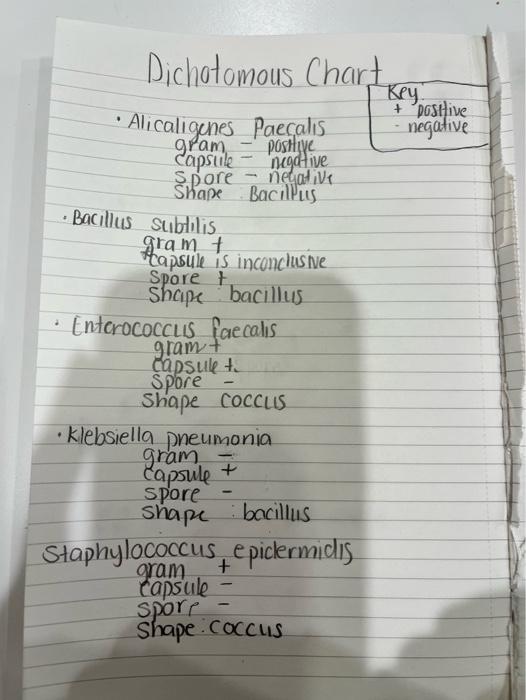 Dichotomous Chart
Key:
+ positive
- negative
• Alicaligenes Faecalis
gram - positive
capsule - negative
spore - negative
Shape : Bacillus
• Bacillus subtilis
gram +
capsule is inconclusive
spore +
Shape : bacillus
• Enterococcus faecalis
gram +
capsule +
spore -
shape coccus
• Klebsiella pneumonia
gram -
capsule +
spore -
shape : bacillus
Staphylococcus epidermidis
gram +
capsule -
spore -
Shape : coccus